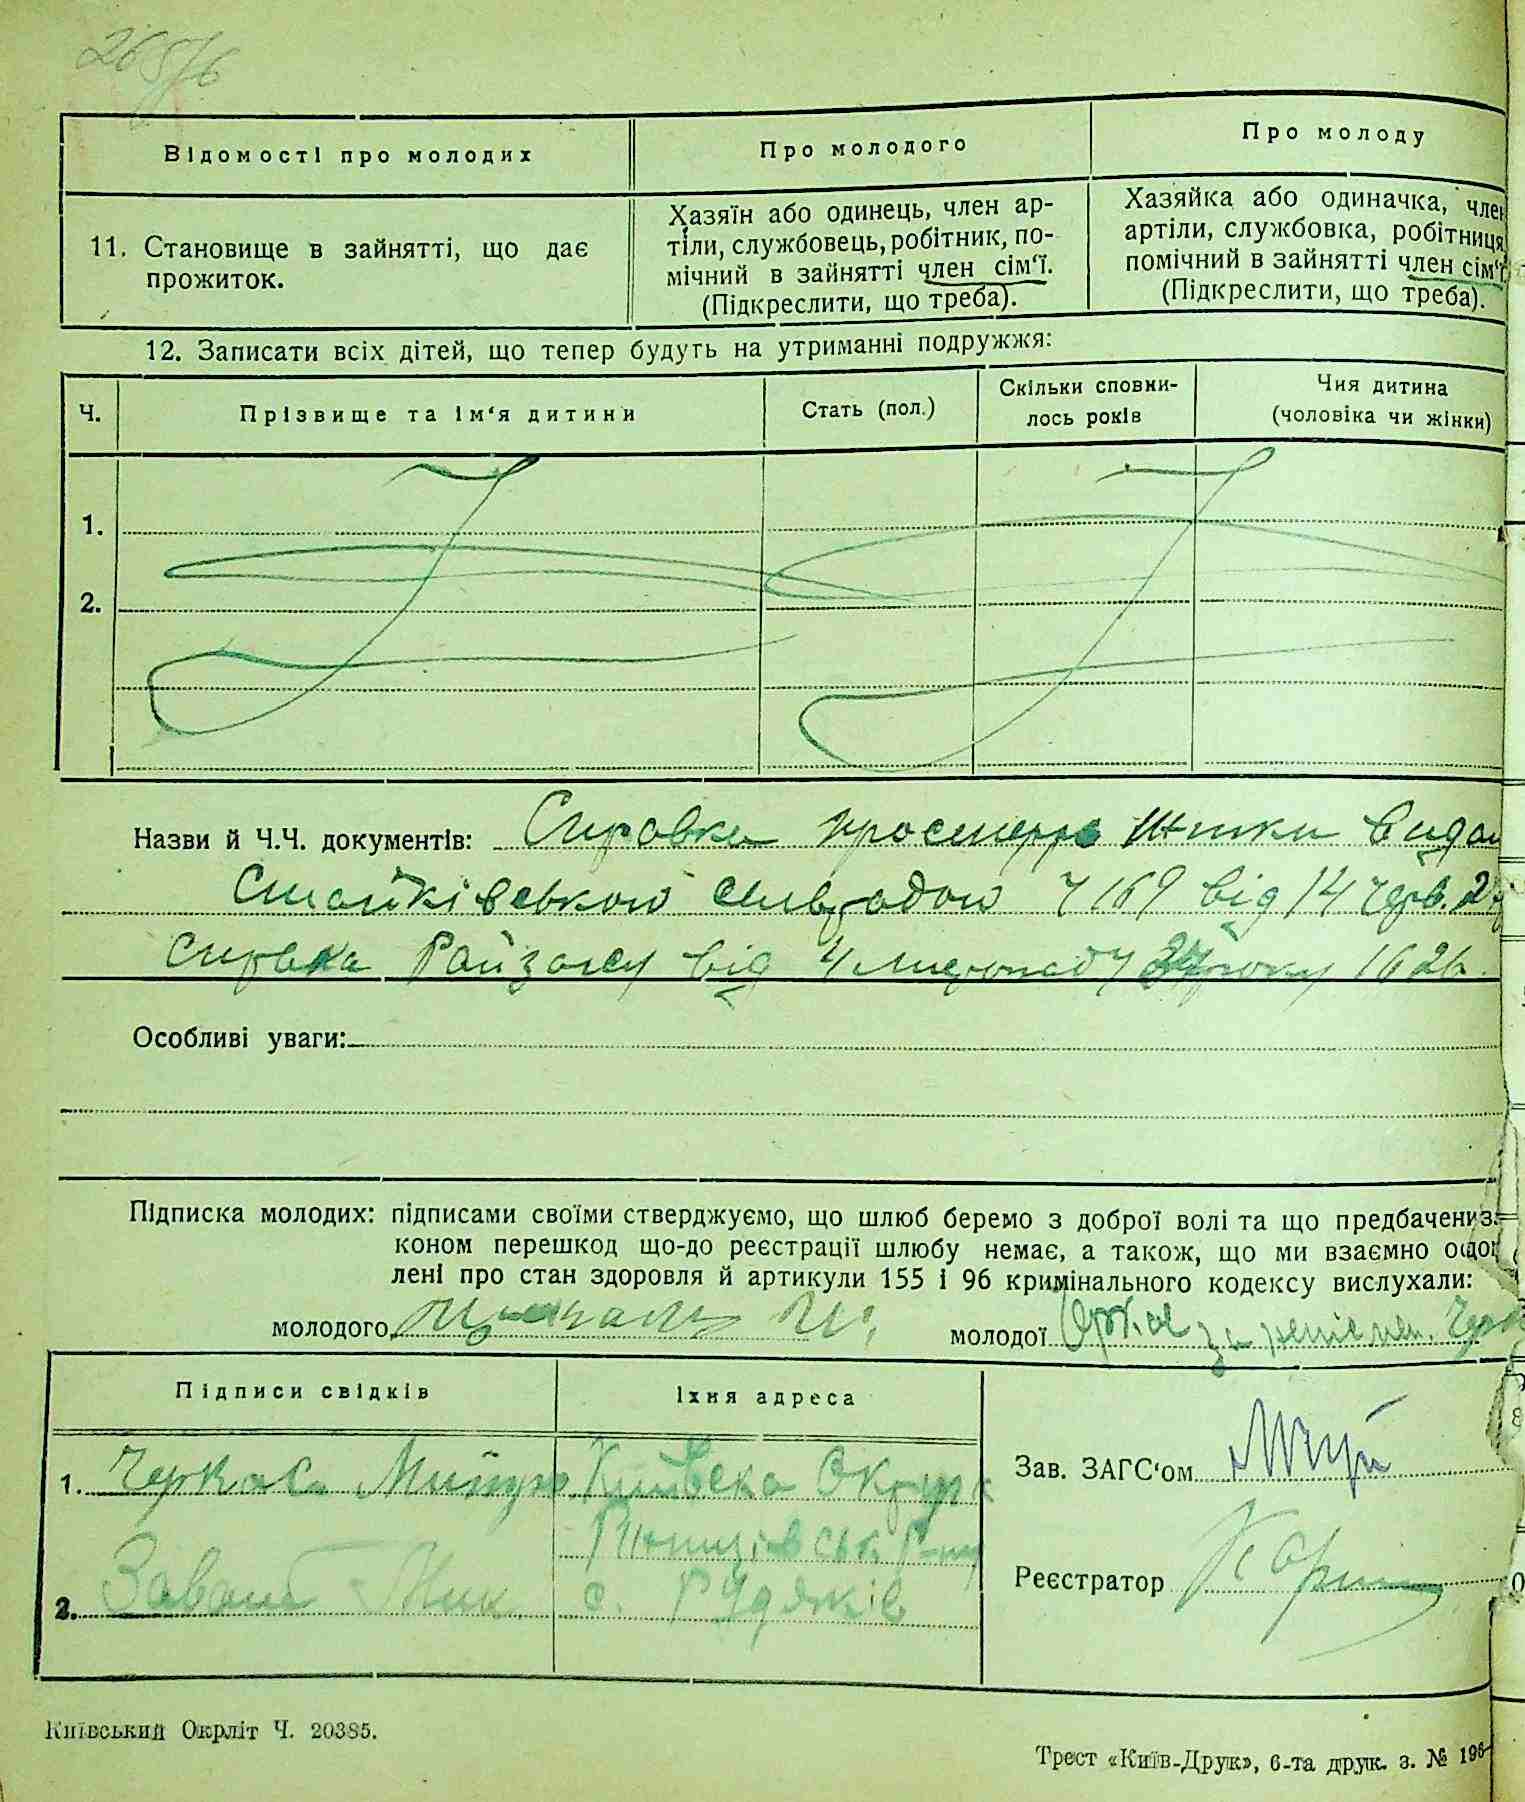 265/6
Відомості про молодих
Про молодого
Про молоду
11. Становище в зайнятті, що дає
прожиток.
Хазяїн або одинець, член ар-
тіли, службовець, робітник, по-
мічний в зайнятті член сім‘ї.
(Підкреслити, що треба).
Хазяйка або одиначка, член
артіли, службовка, робітниця,
помічний в зайнятті член сім‘ї
(Підкреслити, що треба).
12. Записати всіх дітей, що тепер будуть на утриманні подружжя:
Ч.
Прізвище та ім‘я дитини
Стать (пол.)
Скільки сповни-
лось років
Чия дитина
(чоловіка чи жінки)
1.
2.
Назви й Ч.Ч. документів: Справка
Стайківською сельрадою Ч 169 від 14 черв. 2
справка від 4 року 1626.
Особливі уваги:
Підписка молодих: підписами своїми стверджуємо, що шлюб беремо з доброї волі та що предбачених
коном перешкод що-до реєстрації шлюбу немає, а також, що ми взаємно
лені про стан здоровля й артикули 155 і 96 кримінального кодексу вислухали:
молодого
молодої
Підписи свідків
Їхня адреса
1. Черкас Київска Округа
с. Рудяків
2.
Зав. ЗАГС‘ом
Реєстратор
Київський Окрліт Ч. 20385.
Трест «Київ-Друк», 6-та друк. з. № 196